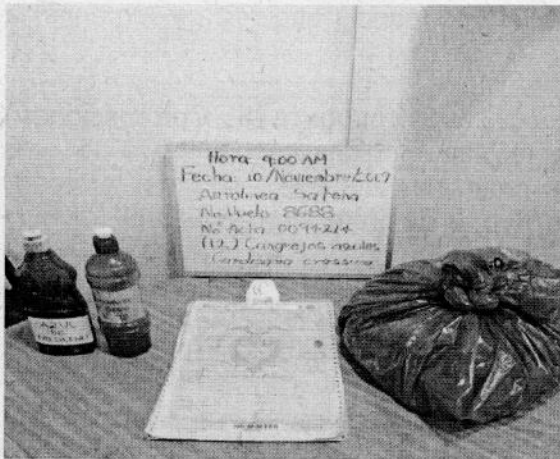 Hora 9:00 AM
Fecha: 10/Noviembre/2009
Aerolinea Satena
No. Vuelo 8688
No Acta 0094214
(12) Cangrejos azules
Cardisoma crassum
AZUL
DE